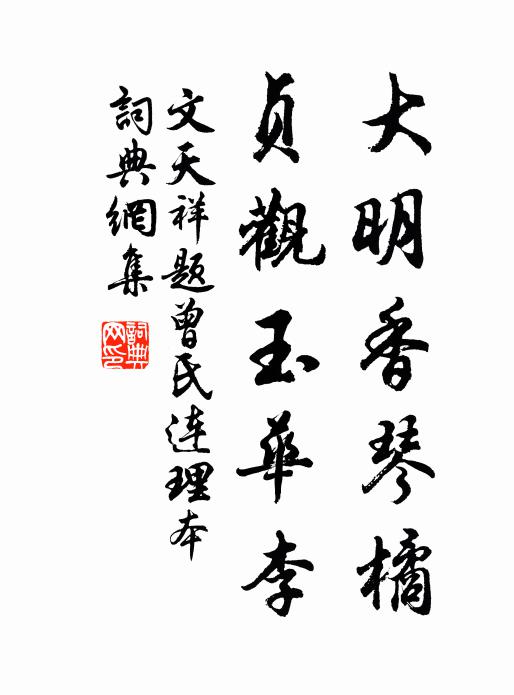 大明香琴橘
貞觀玉華李
文天祥題曾氏连理本
詞典網集
詞典网印